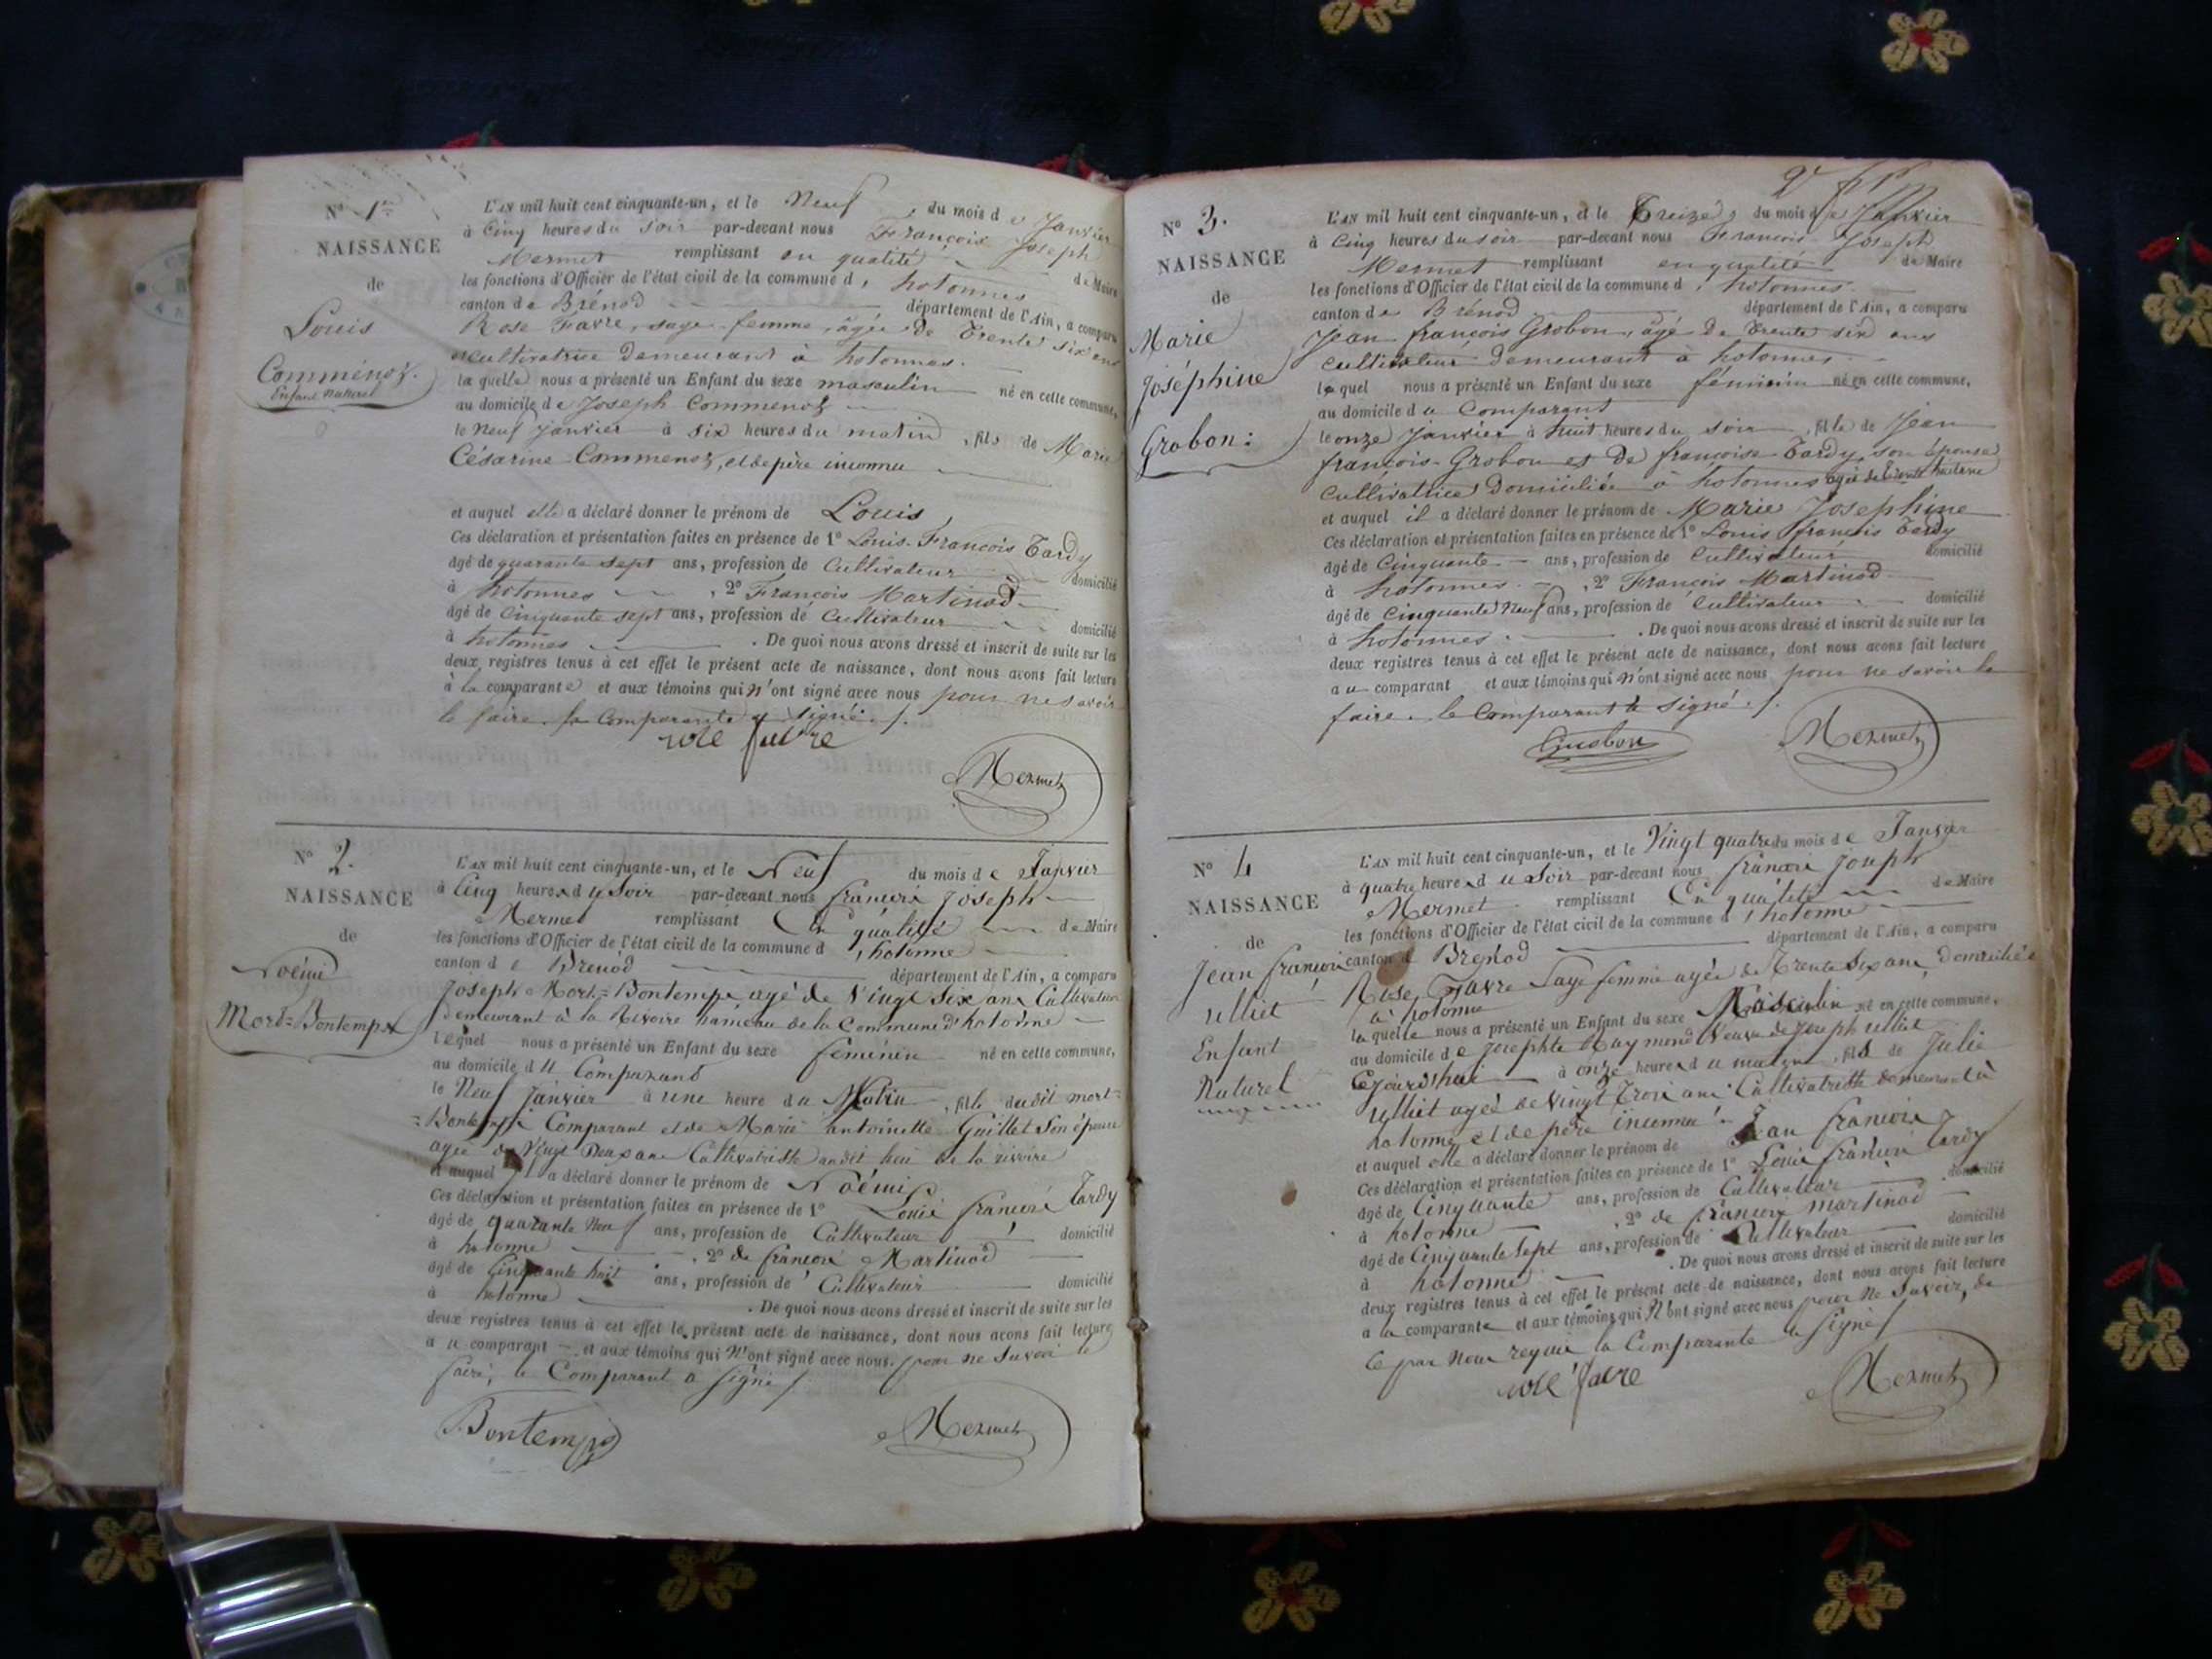 N° 1er
NAISSANCE
de
Louis
Commenoz.
Enfant Naturel
L'AN mil huit cent cinquante-un, et le Neuf, du mois de Janvier
à Cinq heures du Soir par-devant nous François Joseph
Mermet remplissant en qualité de Maire
les fonctions d'Officier de l'état civil de la commune d'hotonnes
canton de Brénod département de l'Ain, a comparu
Rose Favre, sage-femme, âgée de Trente six ans
cultivatrice demeurant à hotonnes.
laquelle nous a présenté un Enfant du sexe masculin né en cette commune,
au domicile de Joseph Commenoz
le Neuf Janvier à six heures du matin, fils de Marie
Césarine Commenoz, et de père inconnu
et auquel elle a déclaré donner le prénom de Louis
Ces déclaration et présentation faites en présence de 1° Louis-François Tardy
âgé de quarante sept ans, profession de Cultivateur domicilié
à hotonnes, 2° François Martinod
âgé de Cinquante sept ans, profession de Cultivateur domicilié
à hotonnes. De quoi nous avons dressé et inscrit de suite sur les
deux registres tenus à cet effet le présent acte de naissance, dont nous avons fait lecture
à la comparante et aux témoins qui n'ont signé avec nous pour ne savoir
le faire. la Comparante a signé./.
rose favre
Mermet
N° 2.
NAISSANCE
de
Noémi
Mort=Bontemps
L'AN mil huit cent cinquante-un, et le Neuf du mois de Janvier
à Cinq heures du Soir par-devant nous françois Joseph
Mermet remplissant En qualité de Maire
les fonctions d'Officier de l'état civil de la commune d'hotonne
canton de Brenod département de l'Ain, a comparu
Joseph Mort=Bontemps agé de Vingt Six ans Cultivateur
demeurant à la Rivoire hameau de la Commune d'hotonne
lequel nous a présenté un Enfant du sexe féminin né en cette commune,
au domicile du Comparant
le Neuf Janvier à une heure du Matin, fille dudit mort=
=Bontemps Comparant et de Marie antoinette Guillet Son épouse
agée de Vingt Deux ans Cultivatrice audit lieu de la rivoire
et auquel il a déclaré donner le prénom de Noémi
Ces déclaration et présentation faites en présence de 1° Louis françois Tardy
âgé de quarante Neuf ans, profession de Cultivateur domicilié
à hotonne, 2° de françois Martinod
âgé de Cinquante huit ans, profession de Cultivateur domicilié
à hotonne. De quoi nous avons dressé et inscrit de suite sur les
deux registres tenus à cet effet le présent acte de naissance, dont nous avons fait lecture
au comparant et aux témoins qui n'ont signé avec nous pour ne Savoir le
faire, le Comparant a signé/
Bontemps
Mermet
N° 3.
NAISSANCE
de
Marie
Joséphine
Grobon:
L'AN mil huit cent cinquante-un, et le Treize, du mois de Janvier
à Cinq heures du soir par-devant nous François Joseph
Mermet remplissant en qualité de Maire
les fonctions d'Officier de l'état civil de la commune d'hotonnes
canton de Brénod département de l'Ain, a comparu
Jean françois Grobon, âgé de trente six ans
cultivateur demeurant à hotonnes
lequel nous a présenté un Enfant du sexe féminin né en cette commune,
au domicile du Comparant
le onze Janvier à huit heures du soir, fille de Jean
françois Grobon et de françoise Tardy, son épouse
Cultivatrice domiciliée à hotonnes agée de trente
et auquel il a déclaré donner le prénom de Marie Josephine
Ces déclaration et présentation faites en présence de 1° Louis françois Tardy
âgé de Cinquante ans, profession de Cultivateur domicilié
à hotonnes, 2° François Martinod
âgé de Cinquante Neuf ans, profession de Cultivateur domicilié
à hotonnes. De quoi nous avons dressé et inscrit de suite sur les
deux registres tenus à cet effet le présent acte de naissance, dont nous avons fait lecture
au comparant et aux témoins qui n'ont signé avec nous pour ne savoir le
faire. le Comparant a signé./.
Grobon
Mermet
N° 4
NAISSANCE
de
Jean françois
ulliet
Enfant
Naturel
L'AN mil huit cent cinquante-un, et le Vingt quatre du mois de Janvier
à quatre heures du Soir par-devant nous françois Joseph
Mermet remplissant En qualité de Maire
les fonctions d'Officier de l'état civil de la commune d'hotonne
canton de Brenod département de l'Ain, a comparu
Rose Favre Sage femme agée de Trente Six ans, domiciliée
à hotonne
laquelle nous a présenté un Enfant du sexe Masculin né en cette commune,
au domicile de Josephte Raymond Veuve de Joseph ulliet
Cejourd'hui à onze heures du matin, fils de Julie
ulliet agée de Vingt Trois ans Cultivatrice demeurant à
hotonne et de père inconnu
et auquel elle a déclaré donner le prénom de Jean françois
Ces déclaration et présentation faites en présence de 1° Louis françois Tardy
âgé de Cinquante ans, profession de Cultivateur domicilié
à hotonne, 2° de françois martinod
âgé de Cinquante Sept ans, profession de Cultivateur domicilié
à hotonne. De quoi nous avons dressé et inscrit de suite sur les
deux registres tenus à cet effet le présent acte de naissance, dont nous avons fait lecture
a la comparante et aux témoins qui n'ont signé avec nous pour ne Savoir, de
ce par Nous requis la Comparante a signé/
rose favre
Mermet